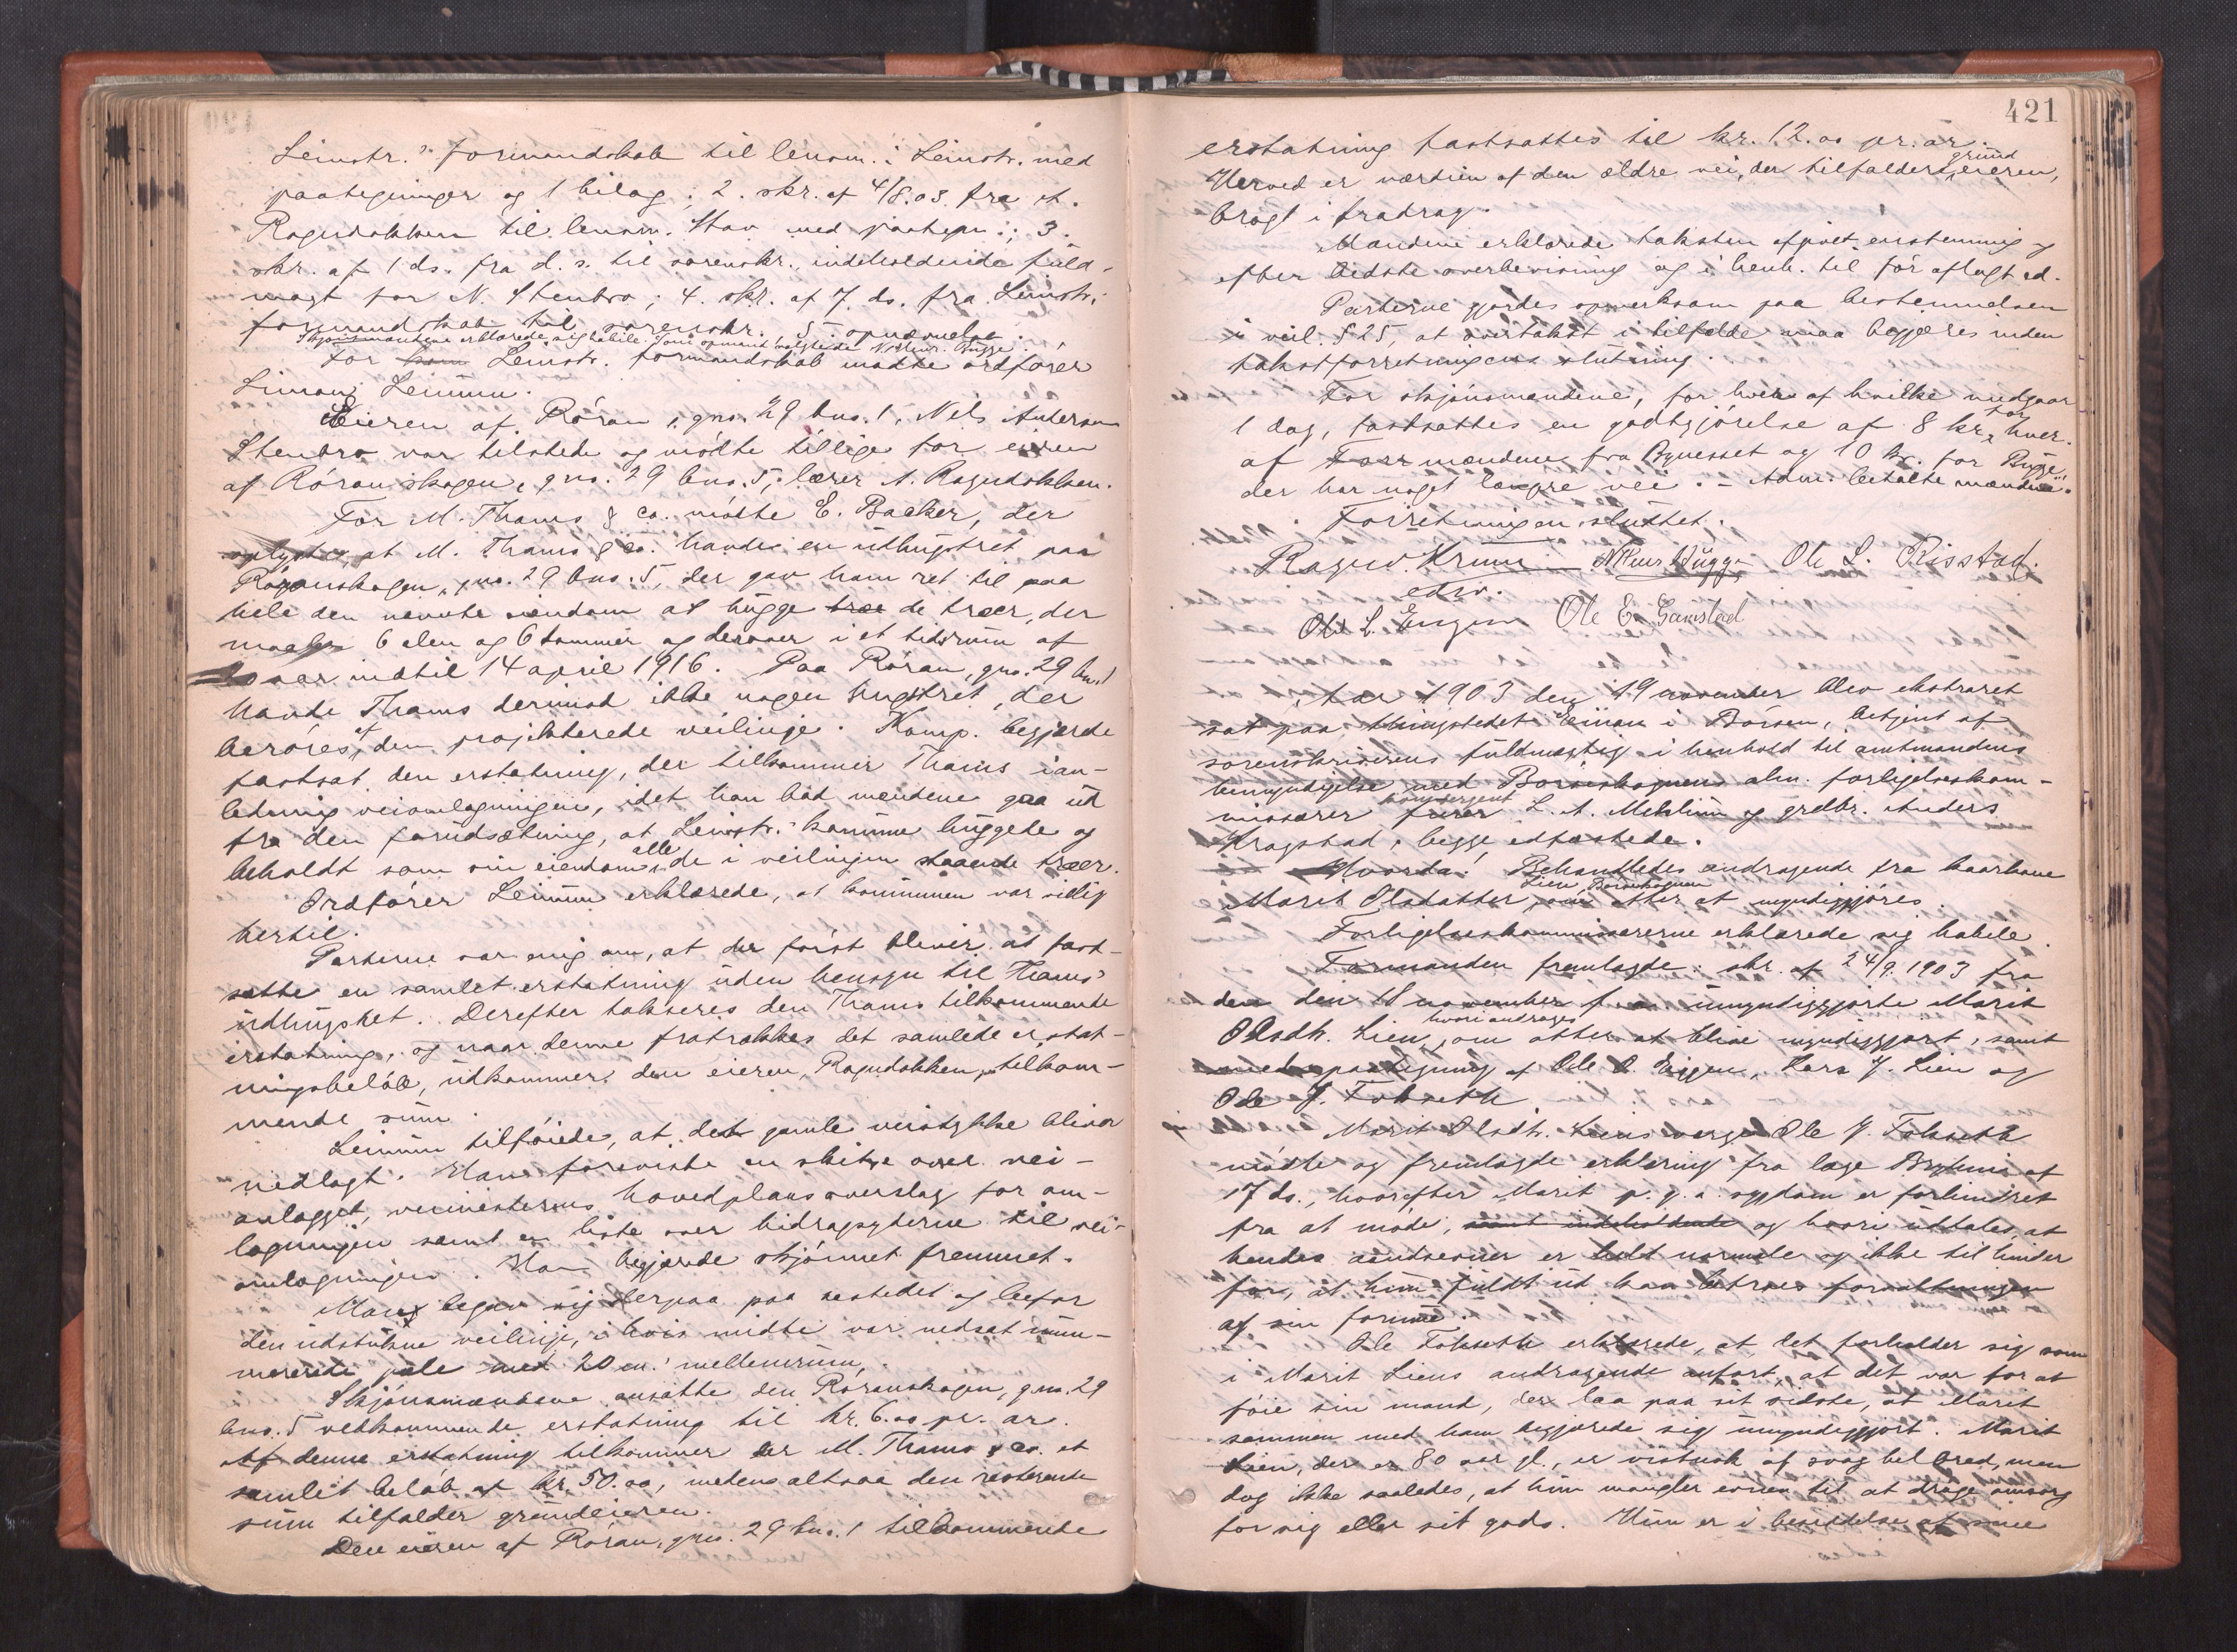 Leinstr.s formandskab til lensm. i Leinstr. med
paategninger og 1 bilag; 2. skr. af 4/8.03. fra A.
Ragndokken til lensm. Hov med paategn.; 3.
skr. af 1 ds. fra d. s. til sorenskr. indeholdende fuld-
magt for N. Stenbro; 4. skr. af 7. ds. fra Leinstr.
formandskab til sorenskr. 5 opnævnelse.
Skjønsmændene erklærede sig habile. Som opmand valgtes
For Leinstr. formandskab mødte ordfører
Simon Leinum.
Eieren af Röran, gno. 29 bno. 1, Nils Anderson
Stenbro var tilstede og mødte tillige for eieren
af Röranskogen, gno. 29 bno. 5, lærer A. Ragndokken.
For M. Thams & co. mødte E. Backer, der
oplyste, at M. Thams & co. havde en udhugstret paa
Röranskogen, gno. 29 bno. 5, der gav ham ret til paa
hele den nævnte eiendom at hugge træ de træer, der
maaler 6 alen og 6 tommer og derover i et tidsrum af
aar indtil 14 april 1916. Paa Röran, gno. 29 bn. 1
havde Thams derimod ikke nogen hugstret, der
berøres af den projekterede veilinje. Komp. begjærede
fastsat den erstatning, der tilkommer Thams i an-
ledning veiomlægningen, idet han bad mændene gaa ud
fra den forudsætning, at Leinstr. kommune huggede og
beholdt som sin eiendom alle de i veilinjen staaende træer.
Ordfører Leinum erklærede, at kommunen var villig
hertil.
Parterne var enig om, at der først bliver at fast-
sætte en samlet erstatning uden hensyn til Thams'
udhugstret. Derefter takseres den Thams tilkommende
erstatning, og naar denne fratrækkes det samlede erstat-
ningsbeløb, udkommer den eieren, Ragndokken, tilkom-
mende sum.
Leinum tilføiede, at det gamle veistykke bliver
nedlagt. Han foreviste en skitse over vei-
anlægget, veimesterens hovedplansoverslag for om-
lægningen samt en liste over bidragsyderne til vei-
omlægningen. Han begjærede skjønnet fremmet.
Man begav sig derpaa paa aastedet og befor
den udstukne veilinje, i hvis midte var nedsat num-
mererte pæle med 20 m.s mellemrum.
Skjønsmændene ansatte den Röranskogen, gno. 29
bno. 5 vedkommende erstatning til kr. 6.00 pr. ar.
Af denne erstatning tilkommer der M. Thams & co. et
samlet beløb af kr. 50.00, medens altsaa den resterende
sum tilfalder grundeieren.
Den eieren af Röran, gno. 29 bno. 1 tilkommende
421
erstatning fastsattes til kr. 12.00 pr. ar.
Herved er værdien af den ældre vei, der tilfalder grundeieren,
bragt i fradrag.
Mændene erklærede taksten afgivet enstemmig og
efter bedste overbevisning og i henh. til før aflagt ed.
Parterne gjordes opmerksom paa bestemmelsen
i veil. § 25, at overtakst i tilfælde maa begjæres inden
takstforretningens slutning.
For skjønsmændene, for hver af hvilke medgaar
1 dag, fastsattes en godtgjørelse af 8 kr. for hver
af mændene fra Bynesset og 10 kr. for Bugge,
der har noget længre vei. – Adm. betalte mændene.
Forretningen sluttet.
Ragnv. Krum Ole L. Risstad.
edsv.
Ole L. Ole E. Gaustad
Aar 1903 den 19 november blev ekstraret
sat paa thingstedet Eiinan i Börsen, betjent af
sorenskriverens fuldmægtig i henhold til amtmandens
bemyndigelse med Børseskognens alm. forligelseskom-
missærer L. A. Mehlum og grdbr. Anders
Krogstad, begge edfæstede.
Hvorda: Behandledes andragende fra kaarkone
Marit Olsdatter Lien, Børseskognen om atter at myndiggjøres.
Forligelseskommissærerne erklærede sig habile.
Formanden fremlagde: skr. af 24/9. 1903 fra
den den 18 november f. a. umyndiggjorte Marit
Olsdtr. Lien, hvori andrages om atter at blive myndiggjort, samt
med paategning af Ole O. Eggen, Lars J. Lien og
Ole J. Fokseth
Marit Olsdtr. Liens verge Ole J. Fokseth
mødte og fremlagde erklæring fra læge af
17 ds., hvorefter Marit p. g. a. sygdom er forhindret
fra at møde, samt indeholdende og hvori udtales, at
hendes aandsevner er helt normale og ikke til hinder
for, at hun fuldt ut kan betroes forvaltningen
af sin formue.
Ole Fokseth erklærede, at det forholder sig som
i Marit Liens andragende anført, at det var for at
føie sin mand, der laa paa sit sidste, at Marit
sammen med ham begjærede sig umyndiggjort. Marit
Lien, der er 80 aar gl., er vistnok af svag helbred, men
dog ikke saaledes, at hun mangler evnen til at drage omsorg
for sig eller sit gods. Hun er i besiddelse af sine